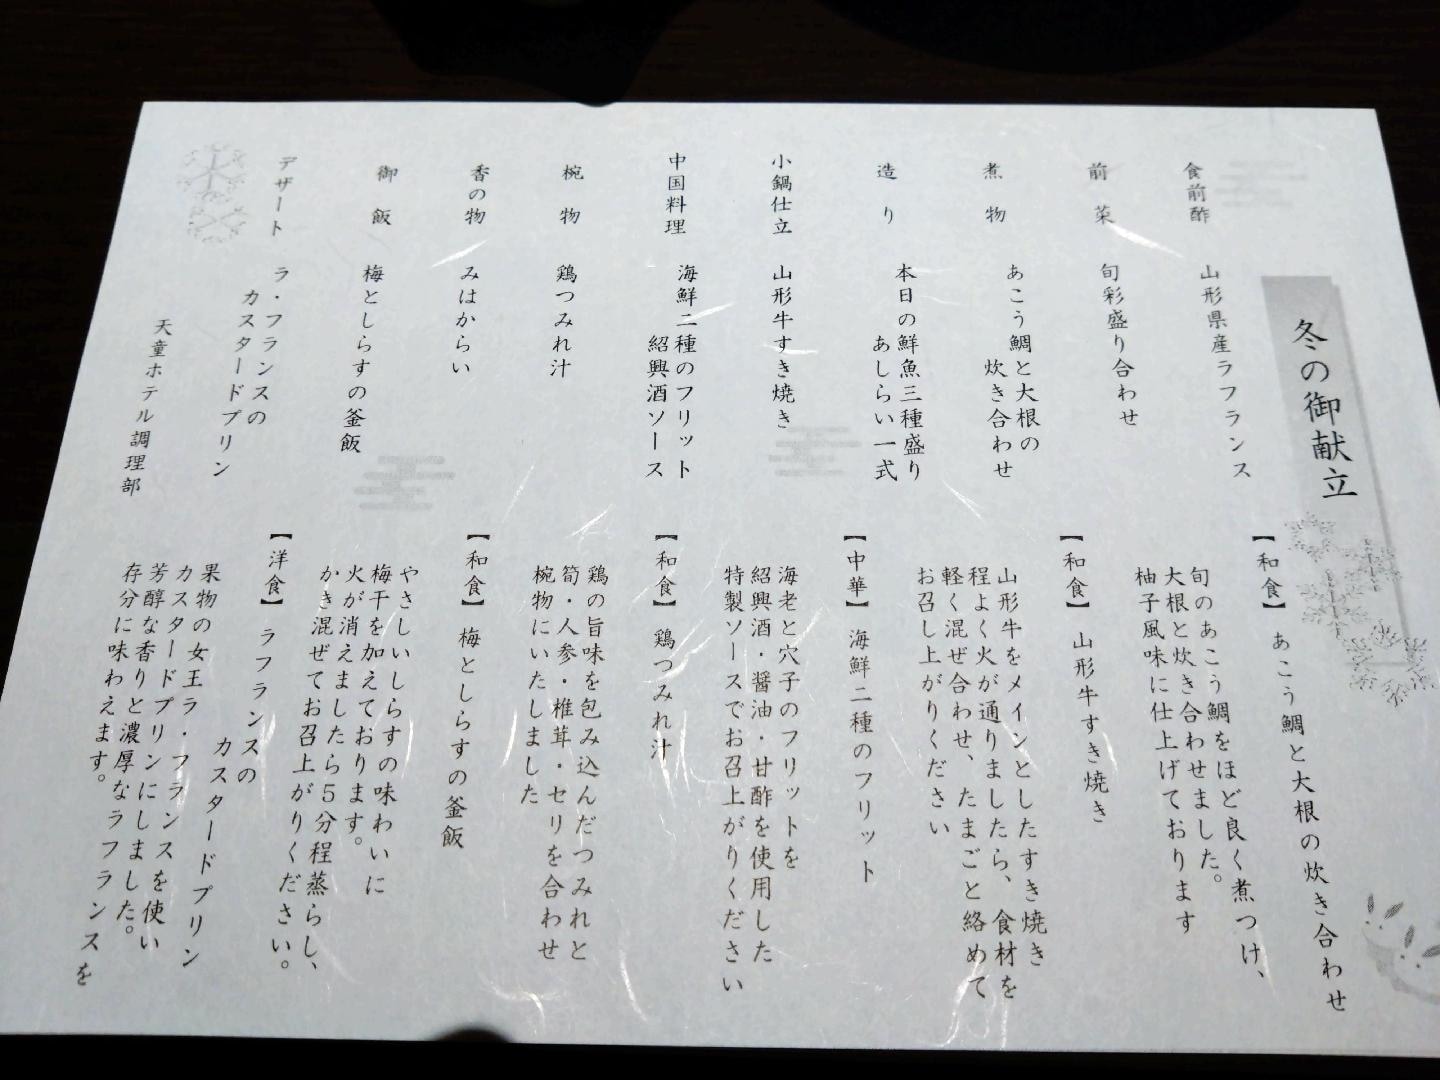 冬の御献立
食前酢
山形県産ラフランス
前菜
旬彩盛り合わせ
煮物
あこう鯛と大根の
炊き合わせ
造り
本日の鮮魚三種盛り
あしらい一式
小鍋仕立
山形牛すき焼き
中国料理
海鮮二種のフリット
紹興酒ソース
椀物
鶏つみれ汁
香の物
みはからい
御飯
梅としらすの釜飯
デザート
ラ・フランスの
カスタードプリン
天童ホテル調理部
【和食】 あこう鯛と大根の炊き合わせ
旬のあこう鯛をほど良く煮つけ、
大根と炊き合わせました。
柚子風味に仕上げております
【和食】 山形牛すき焼き
山形牛をメインとしたすき焼き
程よく火が通りましたら、食材を
軽く混ぜ合わせ、たまごと絡めて
お召し上がりください
【中華】 海鮮二種のフリット
海老と穴子のフリットを
紹興酒・醤油・甘酢を使用した
特製ソースでお召上がりください
【和食】 鶏つみれ汁
鶏の旨味を包み込んだつみれと
筍・人参・椎茸・セリを合わせ
椀物にいたしました
【和食】 梅としらすの釜飯
やさしいしらすの味わいに
梅干を加えております。
火が消えましたら5分程蒸らし、
かき混ぜてお召上がりください。
【洋食】 ラフランスの
カスタードプリン
果物の女王ラ・フランスを使い
カスタードプリンにしました。
芳醇な香りと濃厚なラフランスを
存分に味わえます。